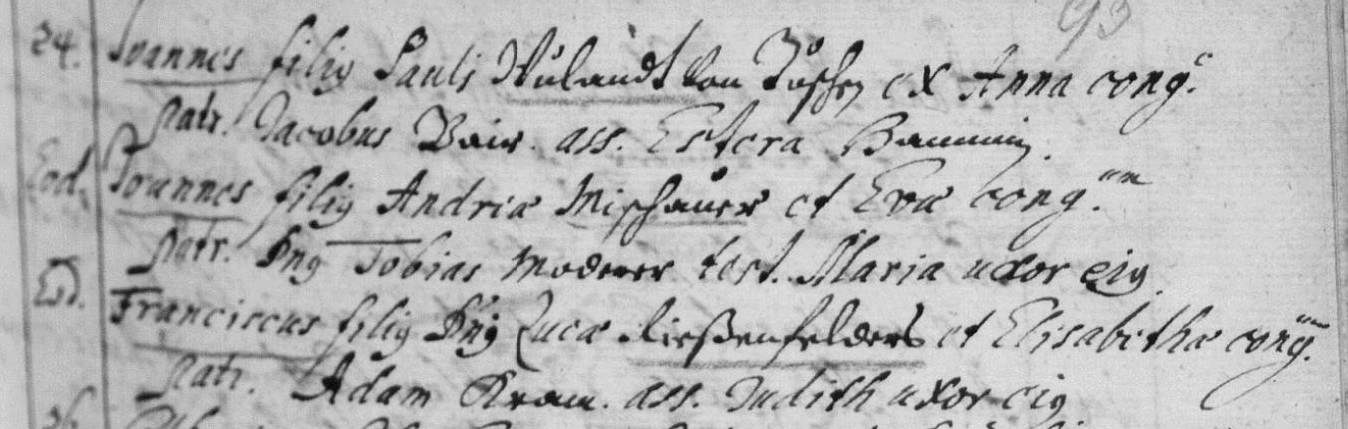 93
24. Joannes filiq Pauli Wulandt von Tussen ex Anna congᵉ.
Patr. Jacobus Bair. ass. Estera
Eod. Joannes filiq Andreæ Mischauer et Eva congᵘᵐ.
Patr. Dnq Tobias Moderer test. Maria uxor eiq.
Eod. Franciscus filiq Dnj Lucæ Rießenfelders et Elisabethæ congᵘᵐ.
Patr. Adam Kram. ass. Judith uxor eiq
26.